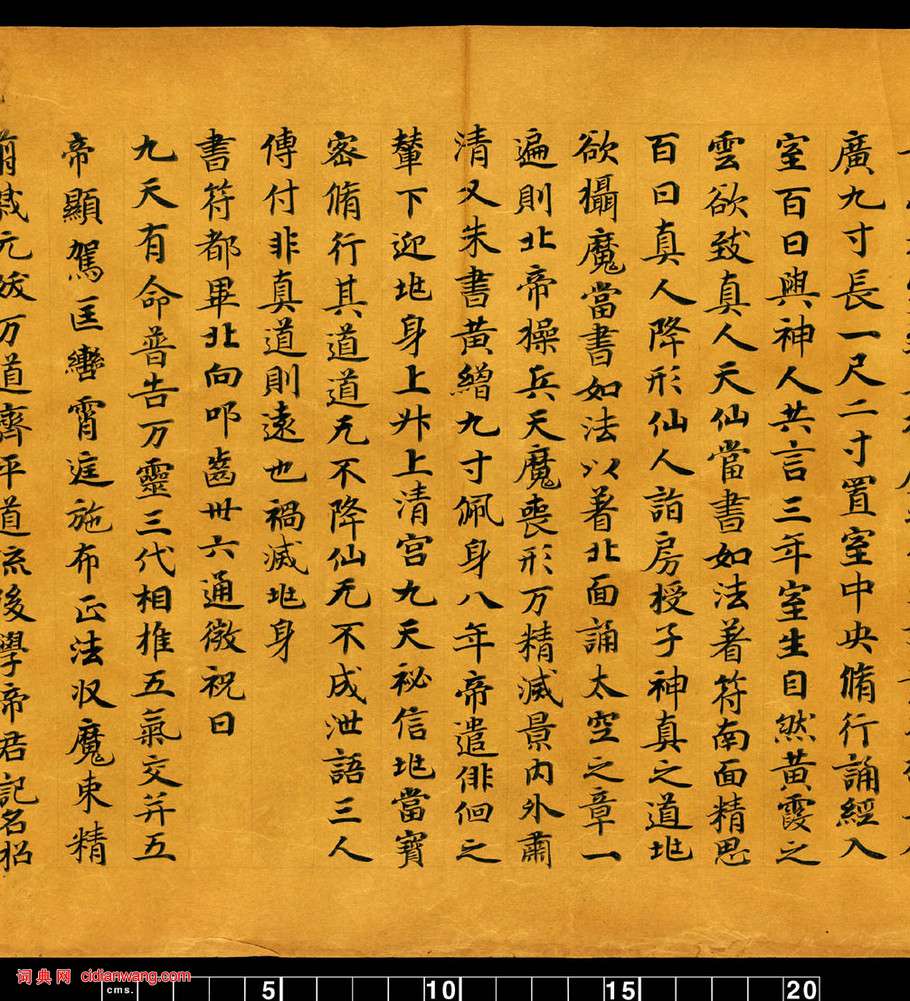 廣九寸長一尺二寸置室中央脩行誦經入
室百日與神人共言三年室生自然黃霞之
雲欲致真人天仙當書如法著符南面精思
百日真人降形仙人詣房授子神真之道地
欲攝魔當書如法以著北面誦太空之章一
遍則北帝操兵天魔喪形万精滅景內外肅
清又朱書黃繒九寸佩身八年帝遣俳徊之
輦下迎地身上升上清宮九天祕信地當寶
密脩行其道道无不降仙无不成泄語三人
傳付非真道則遠也禍滅地身
書符都畢北向叩齒卅六通微祝曰
九天有命普告万靈三代相推五氣交并五
帝顯駕匡轡霄庭施布正法收魔束精
万道齊平道流後學帝君記名
词典网 cidianwang.com
cms. 5 10 15 20